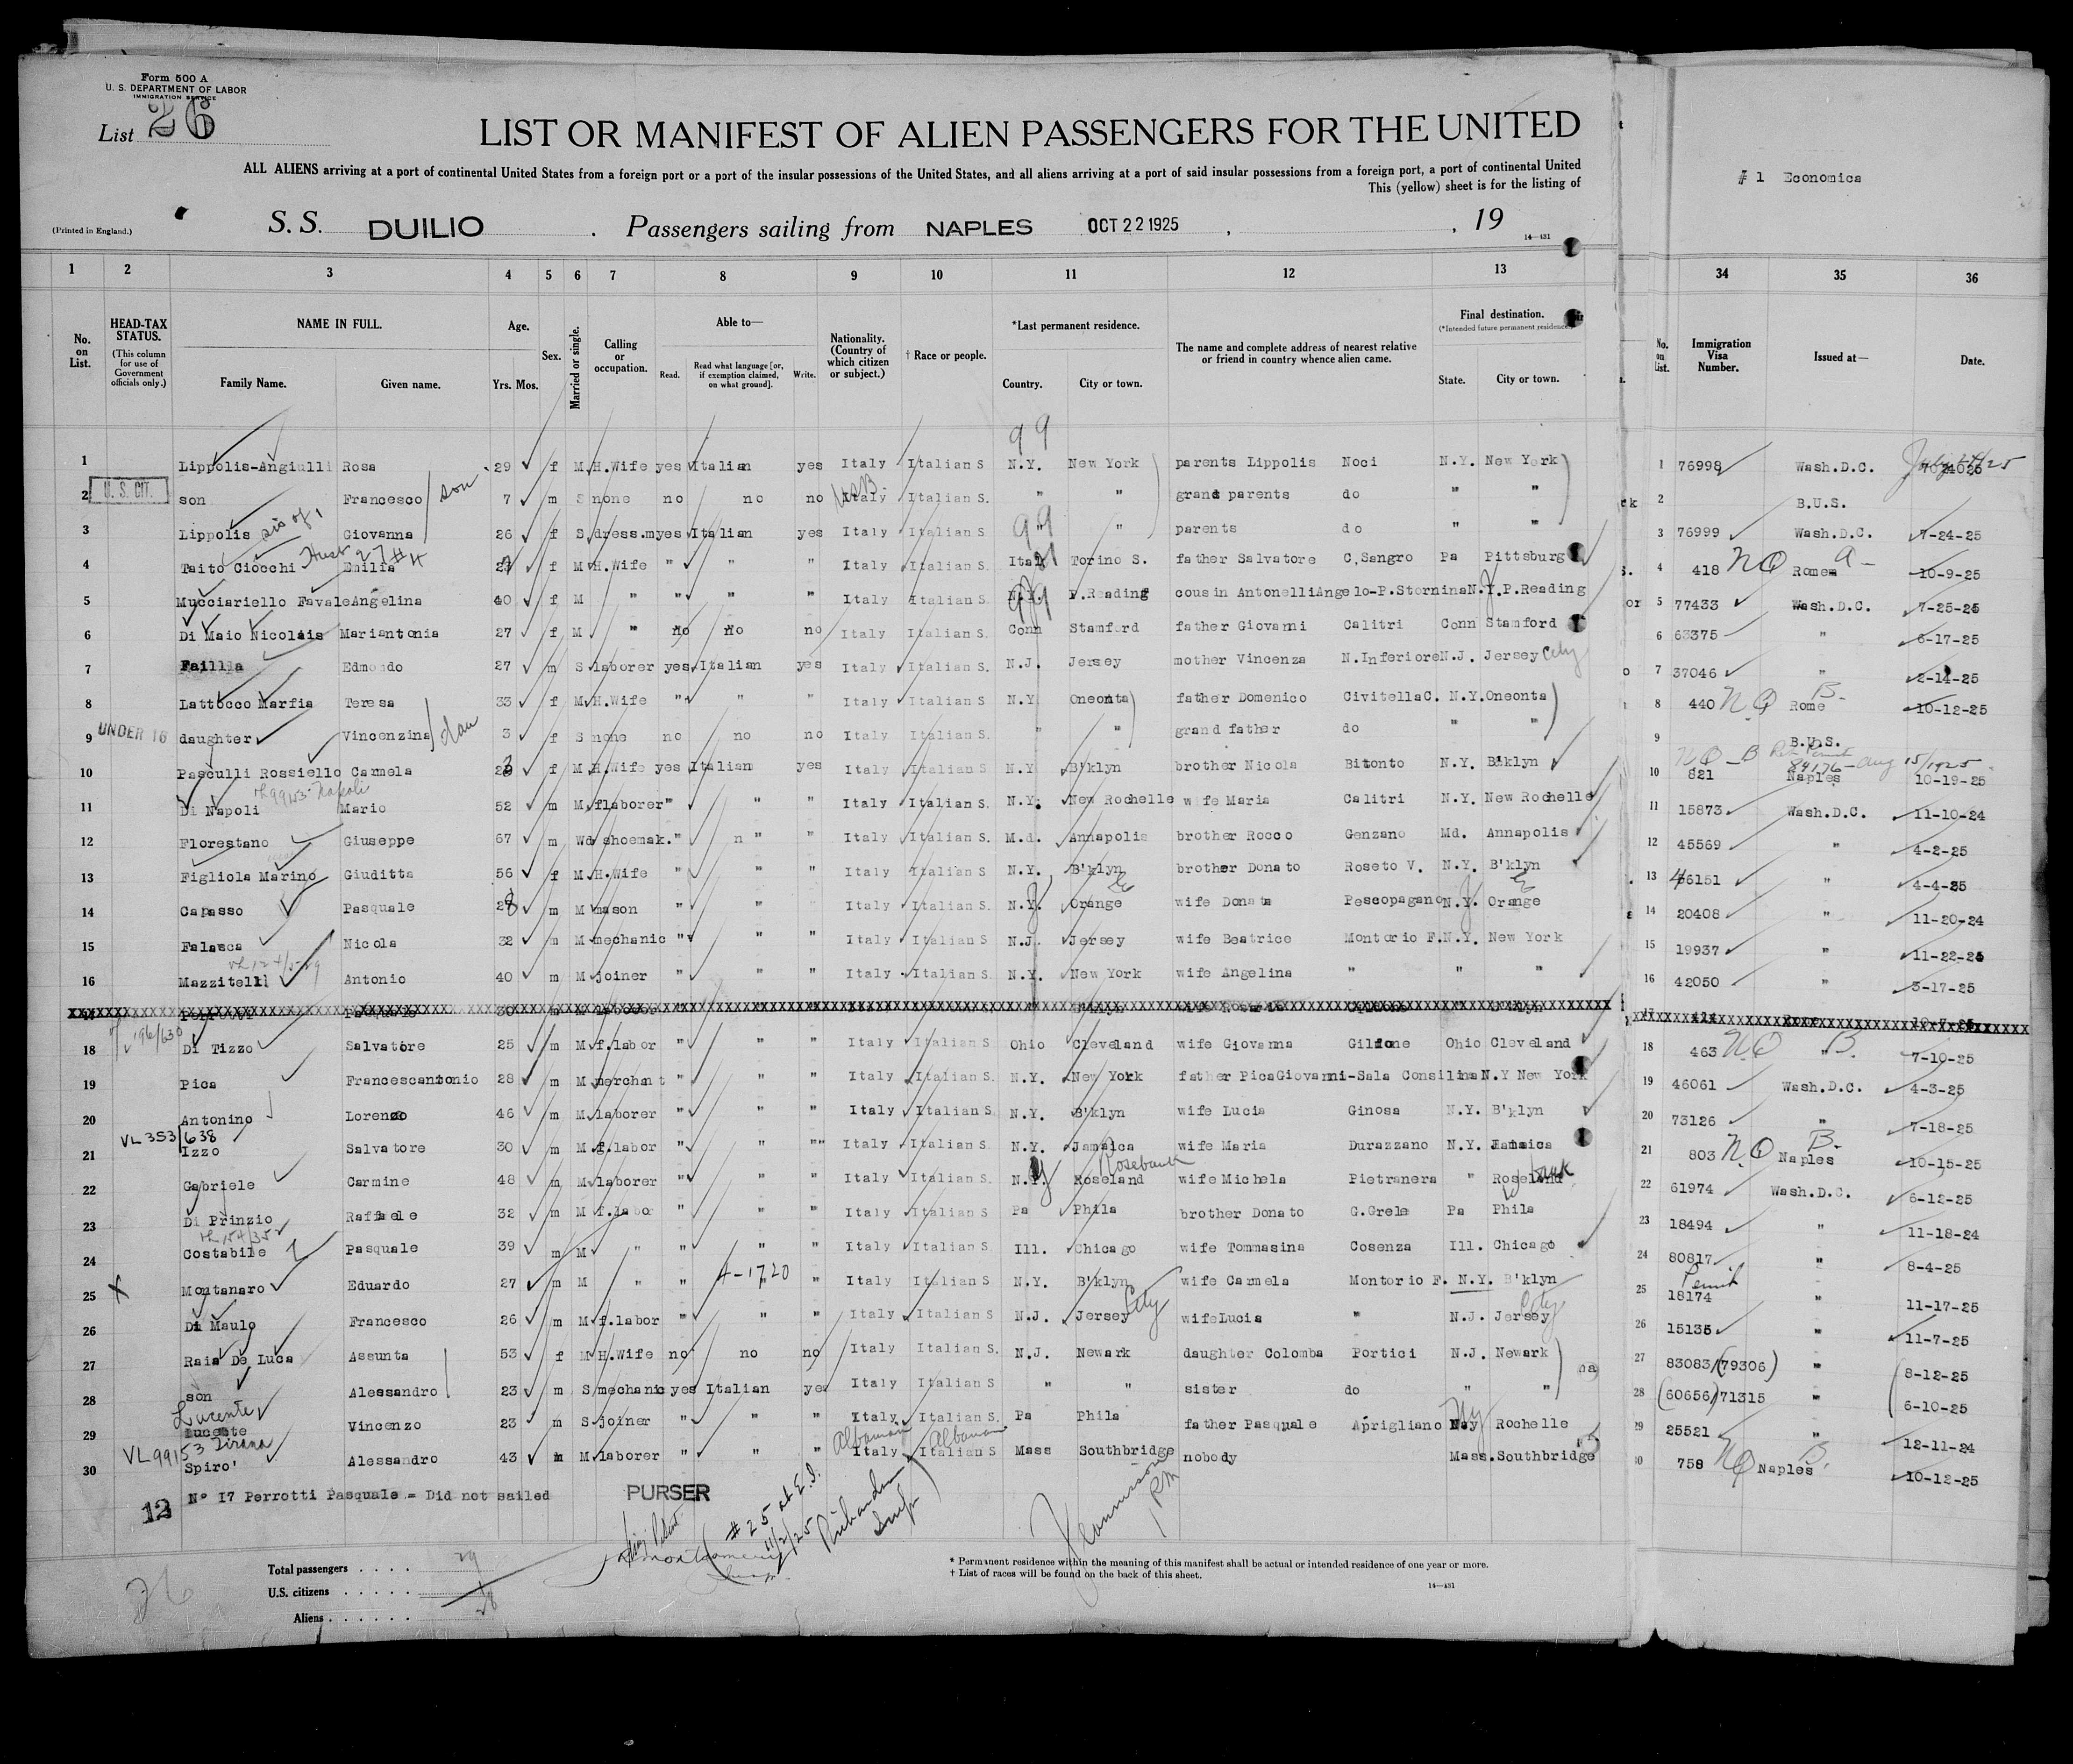 Form 500 A
U. S. DEPARTMENT OF LABOR
IMMIGRATION SERVICE
List 26
LIST OR MANIFEST OF ALIEN PASSENGERS FOR THE UNITED
ALL ALIENS arriving at a port of continental United States from a foreign port or a port of the insular possessions of the United States, and all aliens arriving at a port of said insular possessions from a foreign port, a port of continental United
This (yellow) sheet is for the listing of
# 1 Economica
(Printed in England.)
S. S. DUILIO . Passengers sailing from NAPLES OCT 22 1925 , , 19
14—431
1 2 3 4 5 6 7 8 9 10 11 12 13 34 35 36
No. on List.
HEAD-TAX STATUS.
(This column for use of Government officials only.)
NAME IN FULL.
Family Name. Given name.
Age.
Yrs. Mos.
Sex.
Married or single.
Calling or occupation.
Able to—
Read. Read what language [or, if exemption claimed, on what ground]. Write.
Nationality. (Country of which citizen or subject.)
† Race or people.
*Last permanent residence.
Country. City or town.
The name and complete address of nearest relative or friend in country whence alien came.
Final destination.
(*Intended future permanent residence.)
State. City or town.
No. on List.
Immigration Visa Number.
Issued at—
Date.
99
1 Lippolis-Angiulli Rosa 29 f M H.Wife yes Italian yes Italy Italian S N.Y. New York parents Lippolis Noci N.Y. New York 1 76998 Wash.D.C. July 24/25
2 U. S. CIT. son Francesco son 7 m S none no no no Italy Italian S. " " grand parents do " " 2 B.U.S.
3 Lippolis sis of 1 Giovanna 26 f S dress.m yes Italian yes Italy Italian S. " " parents do " " 3 76999 Wash.D.C. 7-24-25
4 Taito Ciocchi Emilia f M H.Wife " " " Italy Italian S. Torino S. father Salvatore C,Sangro Pa Pittsburg 4 418 NQ Rome 10-9-25
5 Mucciariello Favale Angelina 40 f M " " " " Italy Italian S. P.Reading cousin Antonelli Angelo-P.Stornina N.J. P.Reading 5 77433 Wash.D.C. 7-25-25
6 Di Maio Nicolais Mariantonia 27 f M " no no no Italy Italian S. Conn Stamford father Giovanni Calitri Conn Stamford 6 63375 " 6-17-25
7 Failla Edmondo 27 m S laborer yes Italian yes Italy Italian S. N.J. Jersey mother Vincenza N.Inferiore N.J. Jersey City 7 37046 " 2-14-25
8 Lattocco Marfia Teresa 33 f M H.Wife " " " Italy Italian S. N.Y Oneonta father Domenico Civitella C. N.Y. Oneonta 8 440 NQ B. Rome 10-12-25
9 UNDER 16 daughter Vincenzina dau 3 f S none no no no Italy Italian S. " " grand father do " " 9 B.U.S.
NQ-B Ret Permit 84176-Aug 15/1925
10 Pasculli Rossiello Carmela f M H.Wife yes Italian yes Italy Italian S. N.Y B'klyn brother Nicola Bitonto N.Y. B'klyn 10 821 Naples 10-19-25
11 Di Napoli Mario 52 m M f.laborer " " " Italy Italian S. N.Y. New Rochelle wife Maria Calitri N.Y. New Rochelle 11 15873 Wash.D.C. 11-10-24
12 Florestano Giuseppe 67 m Wd shoemak. " " " Italy Italian S. M.d. Annapolis brother Rocco Genzano Md. Annapolis 12 45569 " 4-2-25
13 Figliola Marino Giuditta 56 f M H.Wife " " " Italy Italian S. N.Y. B'klyn brother Donato Roseto V. N.Y. B'klyn 13 46151 " 4-4-25
14 Capasso Pasquale 28 m M mason " " " Italy Italian S. N.J. E Orange wife Donata Pescopagano N.J. E Orange 14 20408 " 11-20-24
15 Falasca Nicola 32 m M mechanic " " " Italy Italian S N.J. Jersey wife Beatrice Montorio F. N.Y. New York 15 19937 " 11-22-24
16 Mazzitelli Antonio 40 m M joiner " " " Italy Italian S. N.Y. New York wife Angelina " " " 16 42050 " 3-17-25
17 Perrotti Pasquale 30 m M laborer
18 Di Tizzo Salvatore 25 m M f.labor " " " Italy Italian S. Ohio Cleveland wife Giovanna Ohio Cleveland 18 463 NQ B. " 7-10-25
19 Pica Francescantonio 28 m M merchant " " " Italy Italian S. N.Y. New York father Pica Giovanni-Sala Consilina N.Y New York 19 46061 Wash.D.C. 4-3-25
20 Antonino Lorenzo 46 m M laborer " " " Italy Italian S N.Y. B'klyn wife Lucia Ginosa N.Y. B'klyn 20 73126 " 7-18-25
VL 353/638
21 Izzo Salvatore 30 m M f.labor " " "" Italy Italian S. N.Y. Jamaica wife Maria Durazzano N.Y. Jamaica 21 803 NQ B. Naples 10-15-25
22 Gabriele Carmine 48 m M laborer " " " Italy Italian S. N.Y. Roseland Rosebank wife Michela Pietranera " Roseland bank 22 61974 Wash.D.C. 6-12-25
23 Di Prinzio Raffaele 32 m M f.labo " " " Italy Italian S Pa Phila brother Donato G.Grele Pa Phila 23 18494 " 11-18-24
24 Costabile Pasquale 39 m M " " " " Italy Italian S. Ill. Chicago wife Tommasina Cosenza Ill. Chicago 24 80817 " 8-4-25
25 X Montanaro Eduardo 27 m M " " 4-1720 " " Italy Italian S N.Y. B'klyn wife Carmela Montorio F. N.Y. B'klyn 25 Permit 18174 " 11-17-25
26 Di Maulo Francesco 26 m M f.labor " " " Italy Italian S N.J. Jersey City wife Lucia " N.J. Jersey City 26 15135 " 11-7-25
27 Raia De Luca Assunta 53 f M H.Wife no no no Italy Italian S. N.J. Newark daughter Colomba Portici N.J. Newark 27 83083 (79306) " 8-12-25
28 son Alessandro 23 m S mechanic yes Italian yes Italy Italian S " " sister do " " 28 (60656) 71315 " 6-10-25
29 Lucente Vincenzo 23 m S joiner " " " Italy Italian S. Pa Phila father Pasquale Aprigliano NY Rochelle 29 25521 " 12-11-24
VL99153 Tirana Albanian Albanian
30 Spiro' Alessandro 43 m M laborer " " " Italy Italian S Mass Southbridge nobody Mass. Southbridge 30 758 NQ B. Naples 10-12-25
N° 17 Perrotti Pasquale = Did not sailed
PURSER
12
#25 at E.I. 11/2/25
Total passengers . . . . 29
U.S. citizens . . . . . 1
Aliens . . . . . . 28
26
* Permanent residence within the meaning of this manifest shall be actual or intended residence of one year or more.
† List of races will be found on the back of this sheet.
14—431